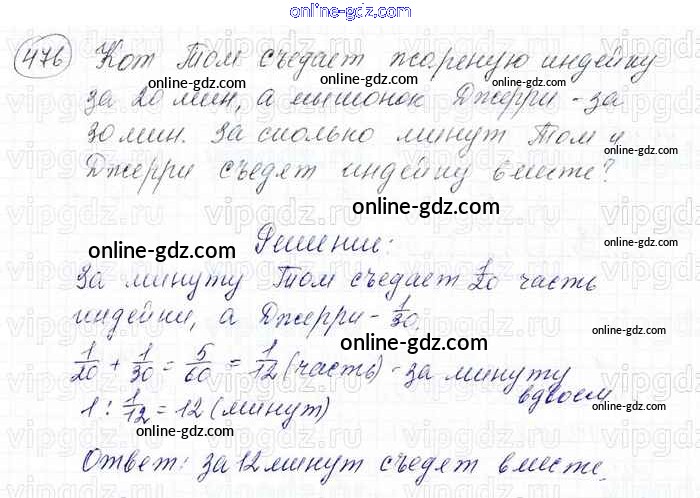 online-gdz.com
476 Кот Том съедает жареную индейку
online-gdz.com online-gdz.com
за 20 мин, а мышонок Джерри - за
30 мин. За сколько минут Том и
online-gdz.com online-gdz.com
Джерри съедят индейку вместе?
vipgdz.ru
online-gdz.com
Решение:
online-gdz.com online-gdz.com
За минуту Том съедает 1/20 часть
индейки, а Джерри - 1/30.
online-gdz.com
1/20 + 1/30 = 5/60 = 1/12 (часть) - за минуту
вдвоем
online-gdz.com online-gdz.com
1 : 1/12 = 12 (минут)
online-gdz.com
Ответ: за 12 минут съедят вместе.